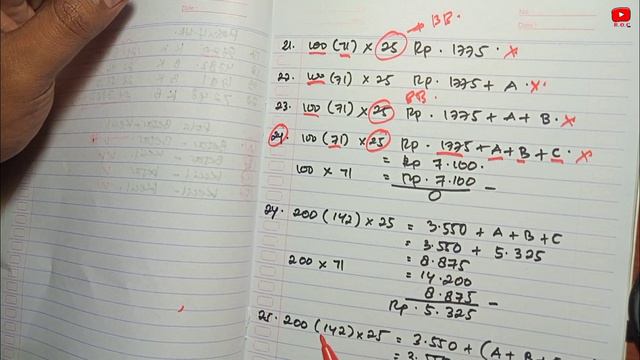 No:
Date:
R.O.C
→ BB.
21. 100 (71) x 25 Rp. 1775. x
22. 100 (71) x 25 Rp. 1775 + A. x
BB.
23. 100 (71) x 25 Rp. 1775 + A + B. x
24. 100 (71) x 25 Rp. 1775 + A + B + C. x
= Rp 7.100.
100 x 71 = Rp. 7.100 -
0
24. 200 (142) x 25 = 3.550 + A + B + C
= 3.550 + 5.325
200 x 71 = 8.875
= 14.200
8.875 -
Rp. 5.325
25. 200 (142) x 25 = 3.550 + (A + B +
= 3.550